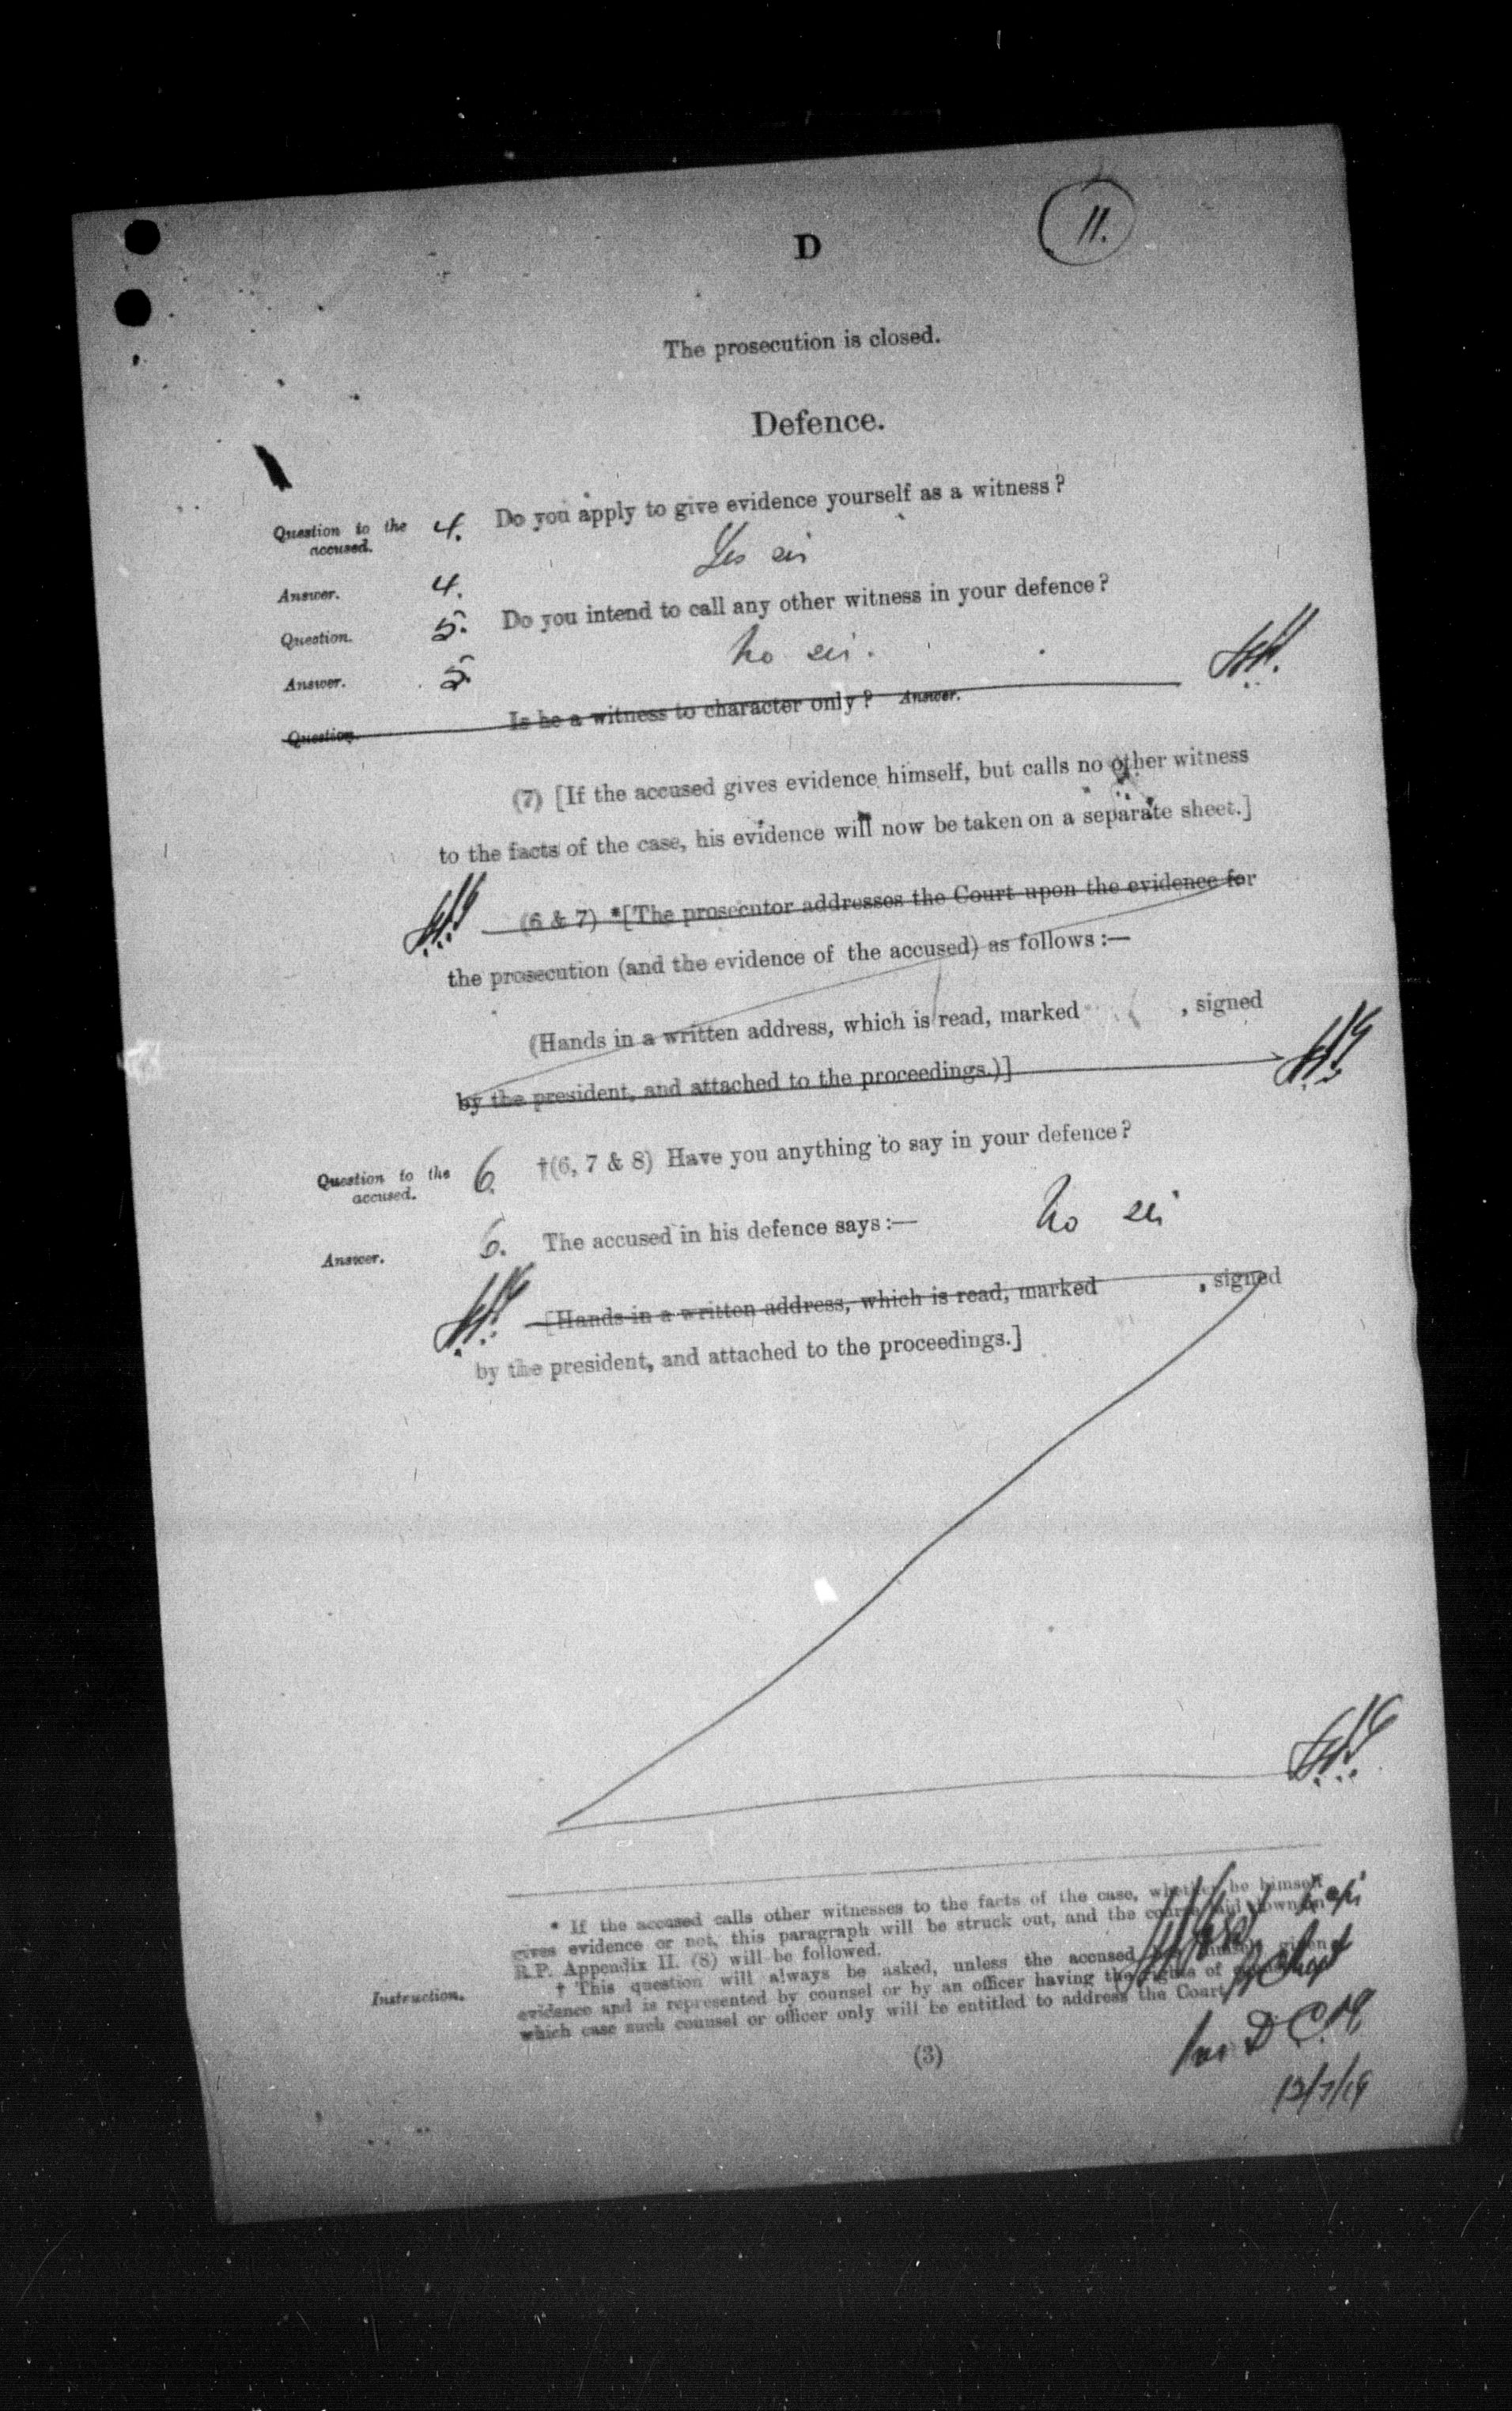 11.
D
The prosecution is closed.
Defence.
Question to the accused. 4. Do you apply to give evidence yourself as a witness?
Answer. 4. Yes sir
Question. 5. Do you intend to call any other witness in your defence?
Answer. 5. No sir.
Question. Is he a witness to character only? Answer.
(7) [If the accused gives evidence himself, but calls no other witness
to the facts of the case, his evidence will now be taken on a separate sheet.]
(6 & 7) *[The prosecutor addresses the Court upon the evidence for
the prosecution (and the evidence of the accused) as follows :—
(Hands in a written address, which is read, marked , signed
by the president, and attached to the proceedings.)]
Question to the accused. 6. †(6, 7 & 8) Have you anything to say in your defence?
Answer. 6. The accused in his defence says :— No sir
[Hands in a written address, which is read, marked , signed
by the president, and attached to the proceedings.]
* If the accused calls other witnesses to the facts of the case, whether he himself
gives evidence or not, this paragraph will be struck out, and the course laid down in
R.P. Appendix II. (8) will be followed.
† This question will always be asked, unless the accused has himself given
Instruction. evidence and is represented by counsel or by an officer having the rights of
which case such counsel or officer only will be entitled to address the Court
(3)
12/7/19